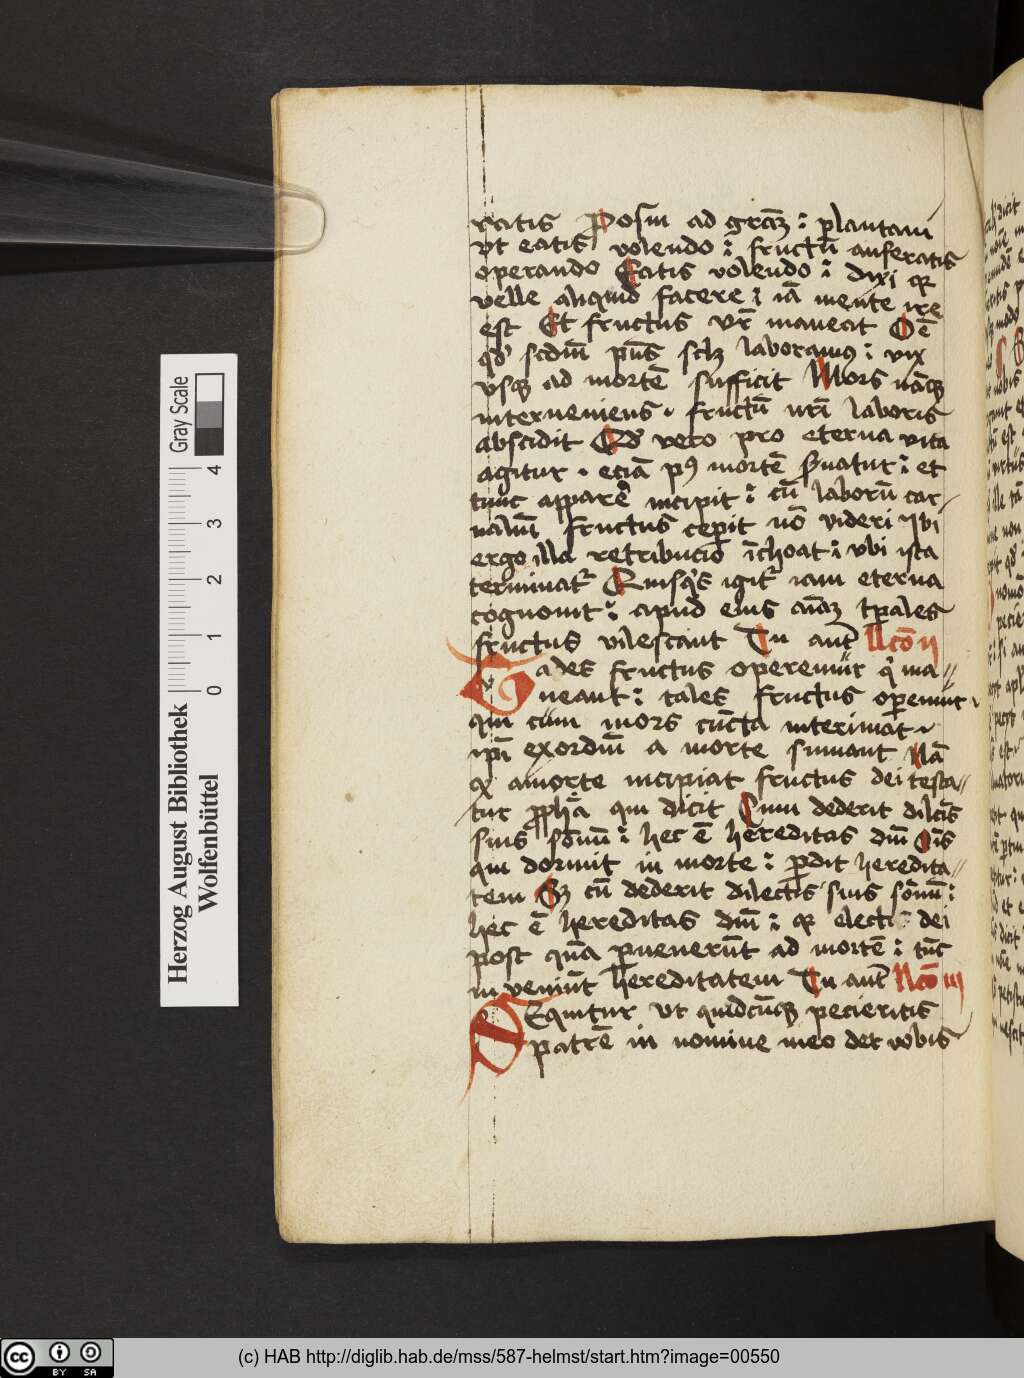 ratis Posui ad gr̄az : plantaui
vt eatis volendo : fructū auferatis
operando Eatis volendo : dixi qr
velle aliquid facere : iā mente ire
est Et fructus vr̄ maneat Om̄e
qd' scdm̄ pn̄s sclz laboramꝰ : vix
vsqz ad mortē sufficit Mors nāqz
interueniens · fructū nr̄i laboris
abscidit Qd' vero pro eterna vita
agitur · eciā pꝰ mortē seruatur : et
tunc apparē incipit : cū laborū car
naliū fructus ceperit nō videri Ibi
ergo illa retribucio īchoat : vbi ista
terminat̉ Quisq̉s igit̉ iam eterna
cognouit : apud eius aīaz tꝑales
fructus vilescant Tu aut̄ Lcō ii
Tales fructus operemur q̉ ma
neant : tales fructus operemur
qui cum mors cūcta interimat
ipī exordiū a morte sumant Nā
qr amorte incipiat fructus dei testa
tur ꝓphā qui dicit Cum dederit dilcīs
suis somnū : hec ē hereditas dn̄i Oīs
qui dormit in morte : ꝑdit heredita
tem Sz cū dederit dilectis suis somnū :
hec ē hereditas dn̄i : qr electi dei
post quā ꝑuenerūt ad mortē : tūc
inveniūt hereditatem Tu aut̄ Lcō iii
SEquitur vt quidcūqz pecieritis
patrē in nomine meo det vobis
Herzog August Bibliothek
Wolfenbüttel
Gray Scale
0 1 2 3 4
cc BY SA
(c) HAB http://diglib.hab.de/mss/587-helmst/start.htm?image=00550